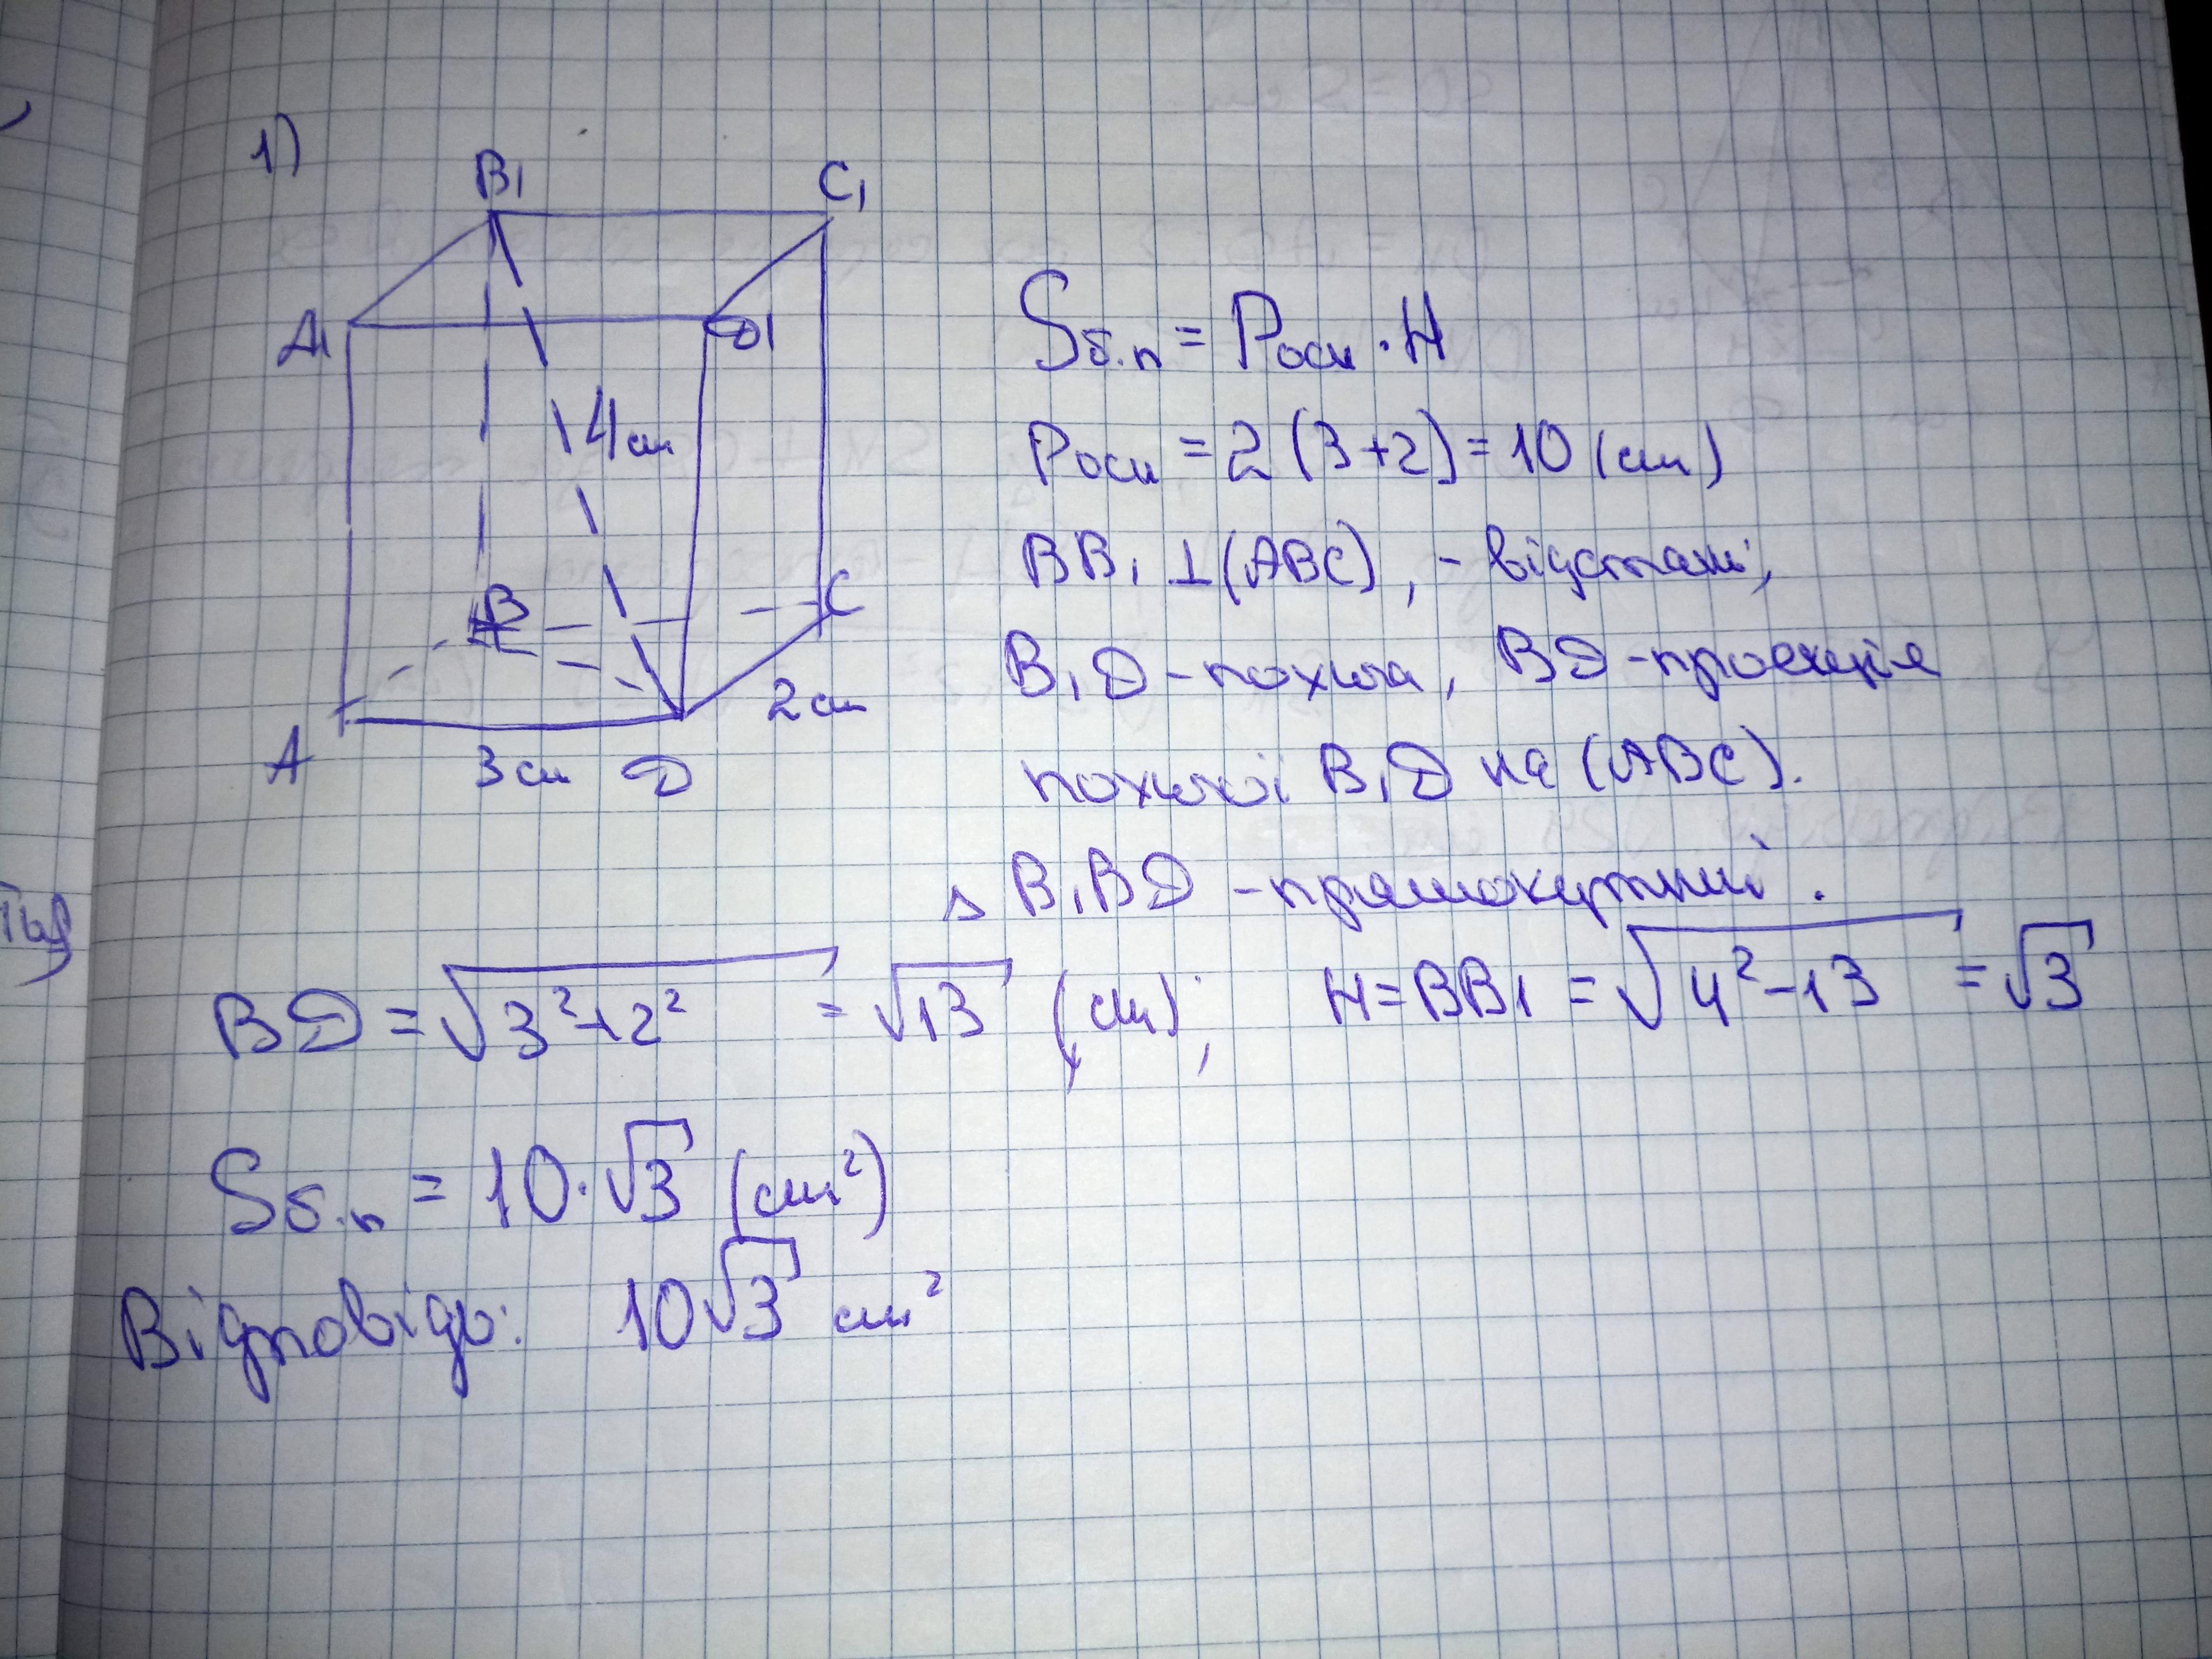 1)
B₁ C₁
A₁ D₁
4см
B C
2см
A 3см D
Sб.п = Pосн · H
Pосн = 2(3+2) = 10 (см)
BB₁ ⊥ (ABC), - відстань;
B₁D - похила, BD - проекція
похилої B₁D на (ABC).
△ B₁BD - прямокутний.
BD = √(3²+2²) = √13 (см); H = BB₁ = √(4²-13) = √3
Sб.п = 10·√3 (см²)
Відповідь: 10√3 см²